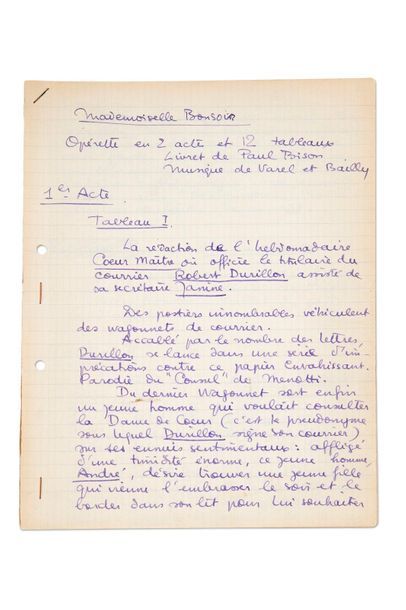 Mademoiselle Bonsoir
Opérette en 2 actes et 12 tableaux
Livret de Paul Bison
Musique de Varel et Bailly
1er Acte
Tableau I.
La rédaction de l'hebdomadaire
Coeur Maître où officie le titulaire du
courrier Robert Durillon assisté de
sa secrétaire Janine.
Des postiers innombrables véhiculent
des wagonnets de courrier.
Accablé par le nombre des lettres,
Durillon se lance dans une série d'im-
précations contre ce papier envahissant.
Parodie du "Consul" de Menotti.
Du dernier wagonnet sort enfin
un jeune homme qui voulait consulter
la Dame de Coeur (c'est le pseudonyme
sous lequel Durillon signe son courrier)
sur ses ennuis sentimentaux : affligé
d'une timidité énorme, ce jeune homme,
André, désire trouver une jeune fille
qui vienne l'embrasser le soir et le
border dans son lit pour lui souhaiter